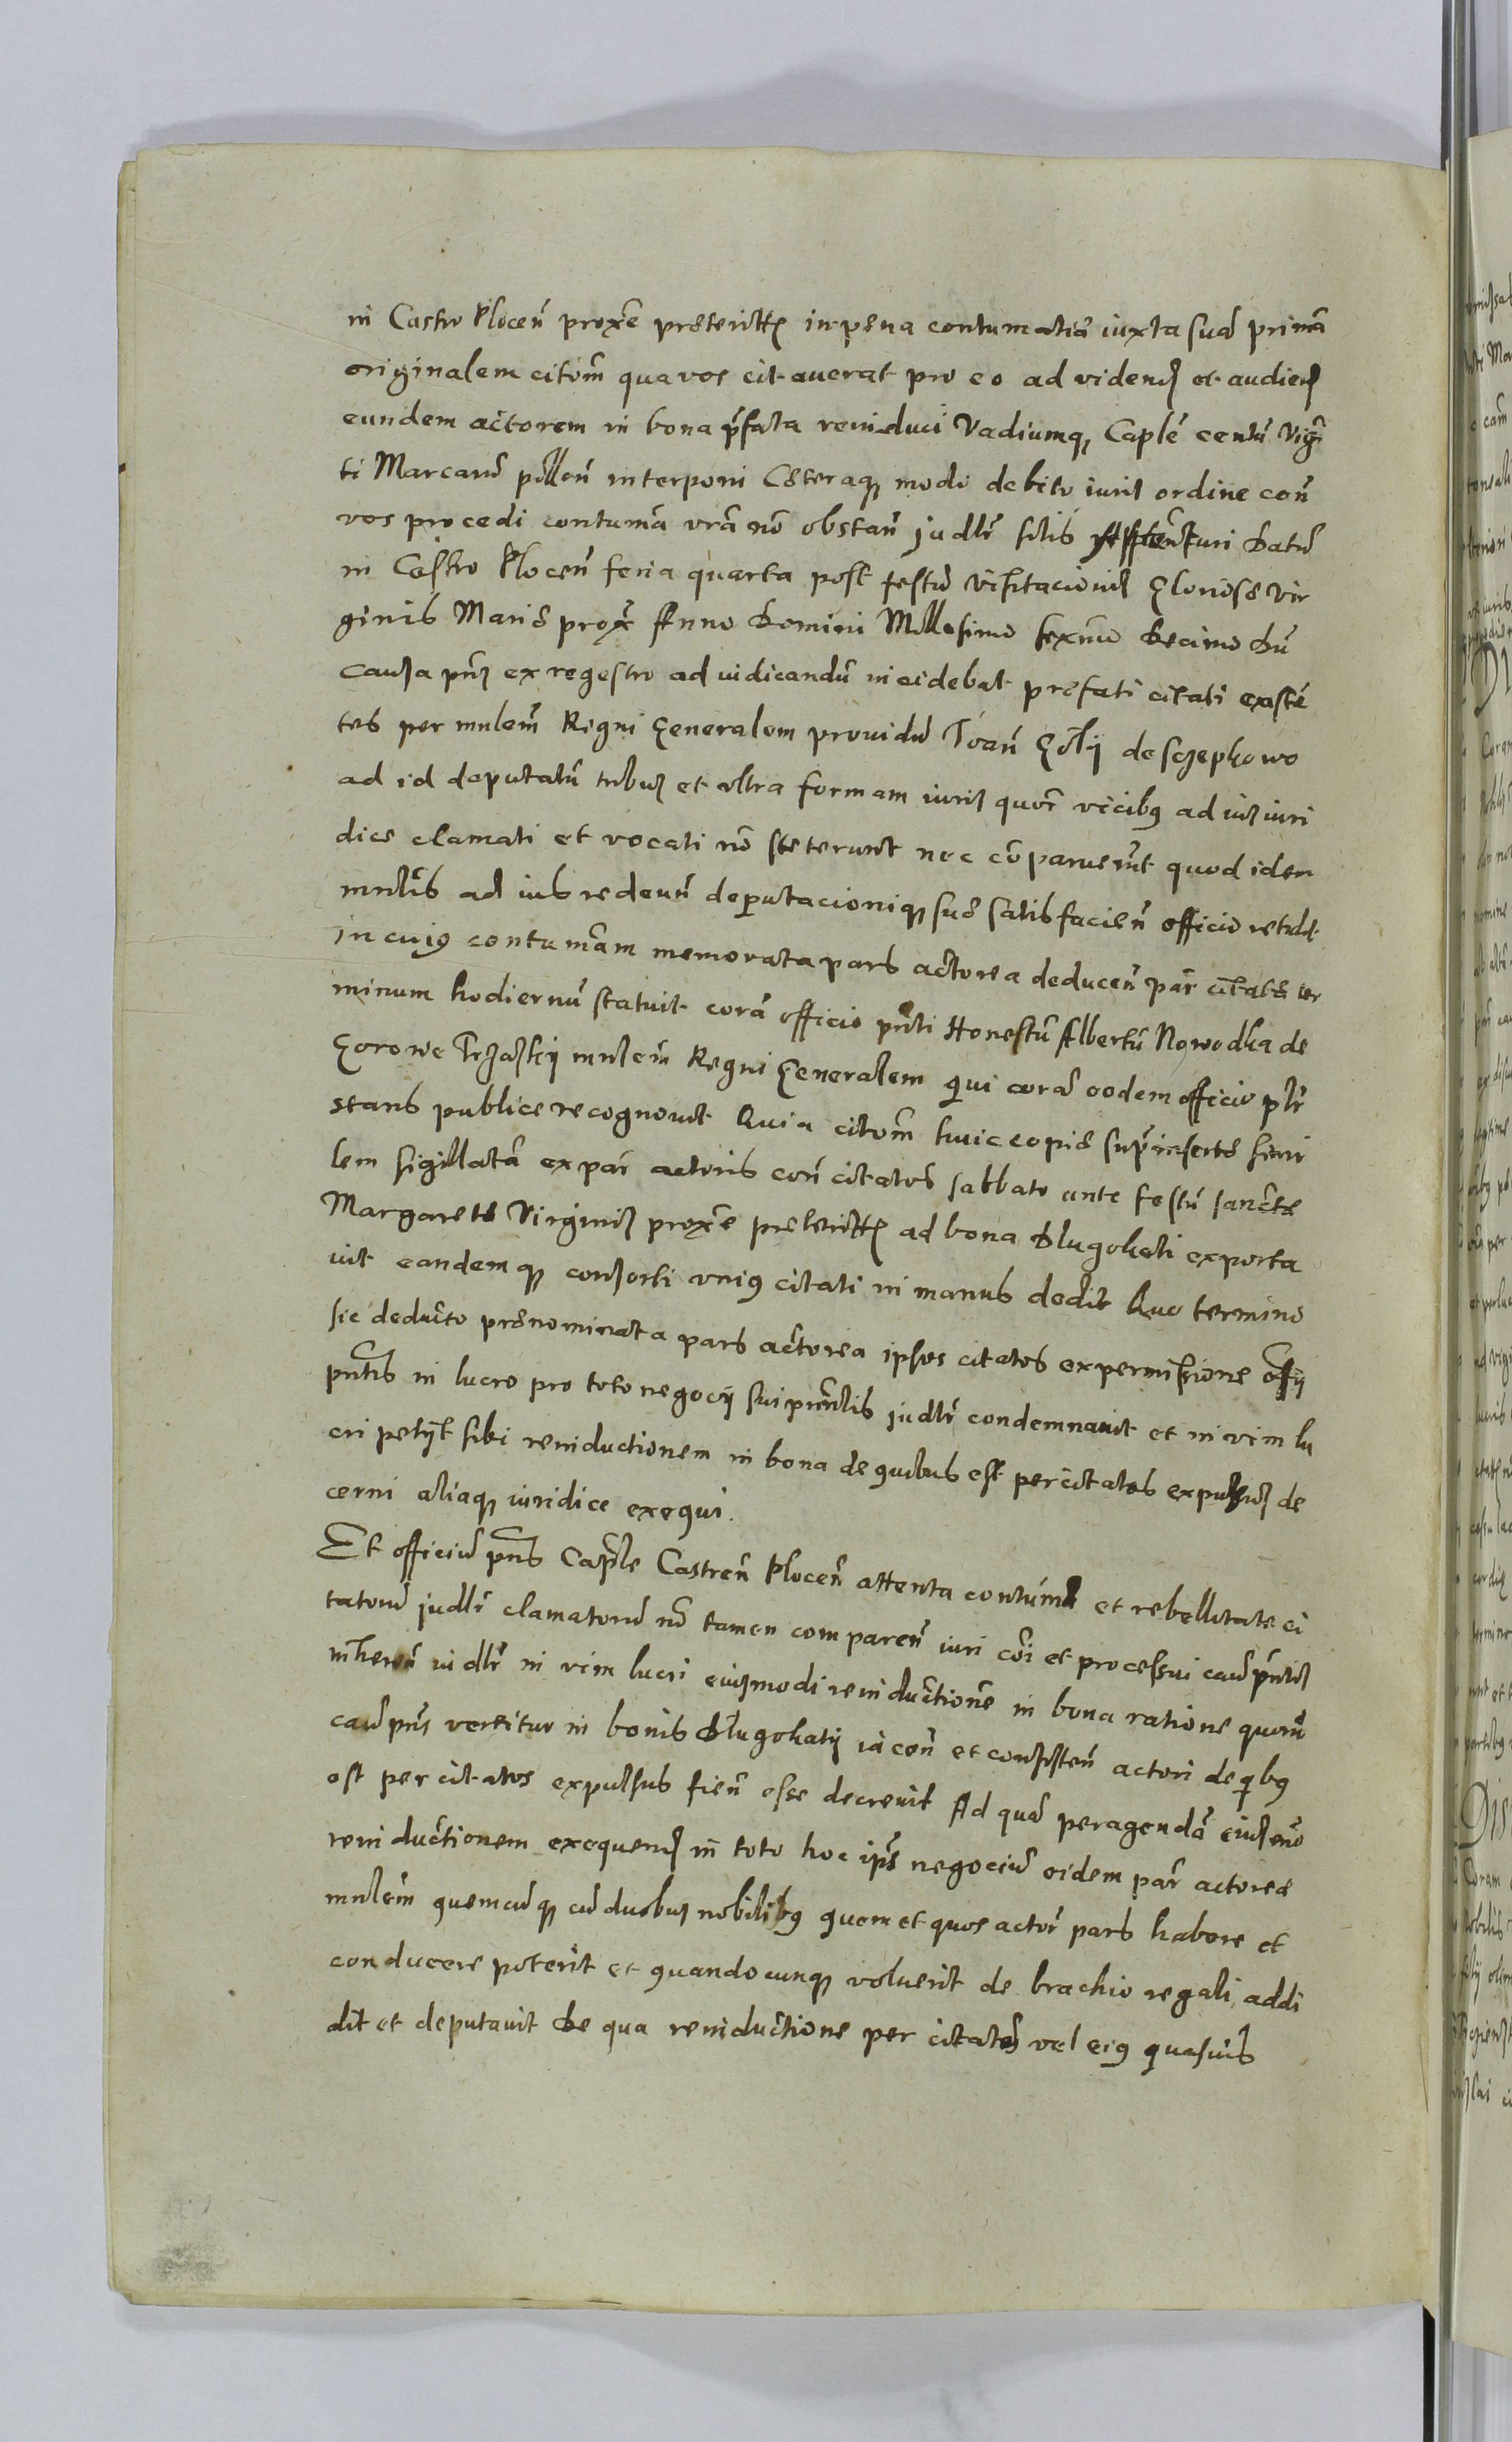 in Castro Plocen̄ proxē præteritt in pœna contumatiæ iuxta suā primā
originalem citoñm qua vos citauerat pro eo ad videnđ et audienđ
eundem actorem in bona pr̄fata reinduci Vadiumq̨ Caplē centū Vigī
ti Marcarū pollen̄ interponi Cæteraq̨ modo debito iuris ordine con̄
vos procedi contumā vrā nō obstan̄ judlr̄ sitis responsuri Datū
in Castro Plocen̄ feria quarta post festū visitacionis Gloriosæ Vir
ginis Mariæ prox̄ Anno Domini Millesimo sexm̄o Decimo Dū
causa pn̄s ex regestro ad iudicandū incidebat præfati citati existē
tes per mnlem̄ Regni Generalem prouidū Joan̄ Goły de Sczepkowo
ad id deputatū tribus et vltra formam iuris quor̄ vicibꝫ ad ius iuri
dice clamati et vocati nō steterunt nec cōparuerūt quod idem
mnlis̄ ad ius redeun̄ deputacioniq̨ suæ satisfacien̄ officio retulit
in cuiꝫ contumā̄m memorata pars actorea deducen̄ par̄ citatæ ter
minum hodiernū statuit corā officio pn̄ti Honestū Albertū Nowodka de
Gorowe Trzaski mnlem̄ Regni Generalem qui corā eodem officio plr̄
stans publice recognouit Quia citoñm huic copiæ supr̄ insertæ simi
lem sigillatā ex par̄ actoris con̄ citatos sabbato ante festū sanctæ
Margaretæ Virginis proxē præteritt ad bona Dlugokąti exporta
uit eandemq̨ consorti vniꝫ citati in manus dedit Quo termino
sic deducto prænominata pars actorea ipsos citatos ex permissione offīj
pn̄tis in lucro pro toto negocij sui pn̄tis judlr̄ condemnauit et in vim lu
cri petijt sibi reinductionem in bona de quibus est per citatos expulsus de
cerni aliaq̨ iuridice exequi.
Et officiū pn̄s Caplē Castren̄ Plocen̄ attenta contumā et rebellitate ci
tatorū judlr̄ clamatorū nō tamen comparen̄ iuri cōi et processui cauꝫ pn̄tis
inheren̄ iudlr̄ in vim lucri eiusmodi reinductionē in bona ratione quorū
cauꝫ pn̄s vertitur in bonis Dlugokątij iacen̄ et consisten̄ actori de qbꝫ
est per citatos expulsus fien̄ esse decreuit Ad quā peragendā eiusmō
reinductionem exequenđ in̄ toto hoc ips̄ negociū eidem par̄ actoreæ
mnlem̄ quemcūq̨ cū duobus nobilibꝫ quem et quos actor̄ pars habere et
conducere poterit et quandocunq̨ voluerit de brachio regali addi
dit et deputauit De qua reinductione per citatos vel eiꝫ quasuis